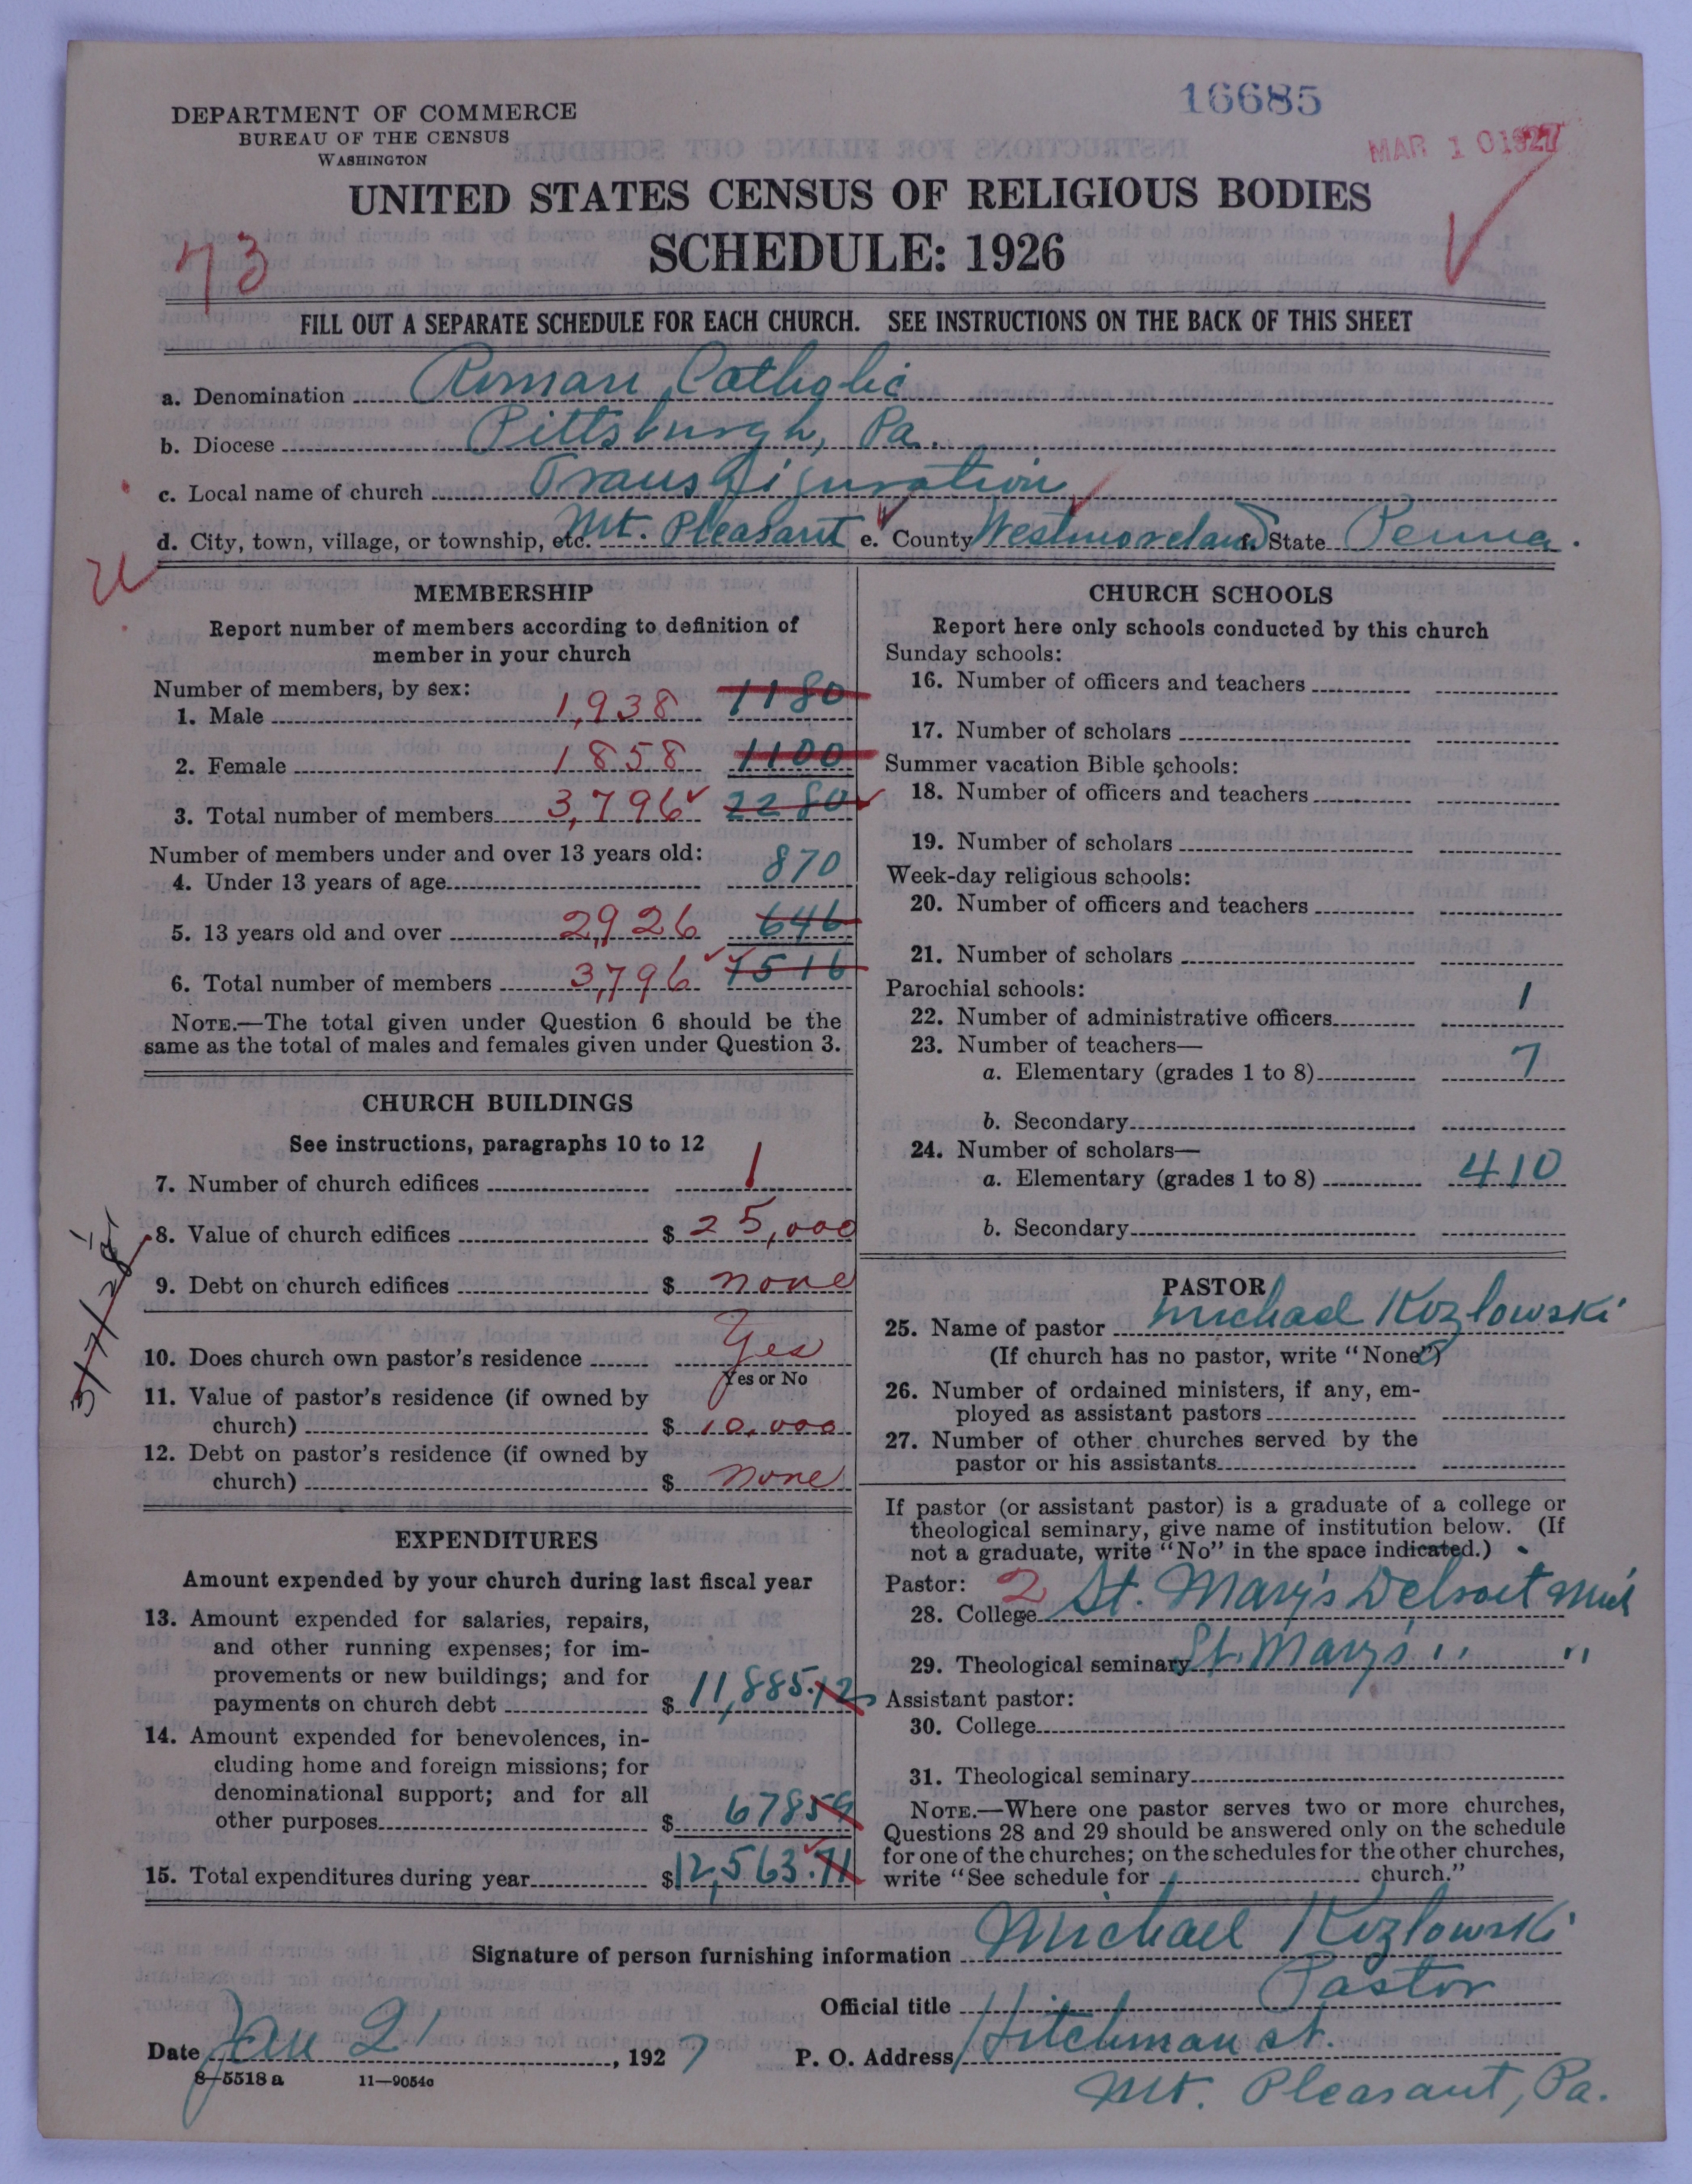 16685
DEPARTMENT OF COMMERCE
BUREAU OF THE CENSUS
WASHINGTON
MAR 10 1927
UNITED STATES CENSUS OF RELIGIOUS BODIES
SCHEDULE: 1926
73
FILL OUT A SEPARATE SCHEDULE FOR EACH CHURCH. SEE INSTRUCTIONS ON THE BACK OF THIS SHEET
a. Denomination Roman Catholic
b. Diocese Pittsburgh, Pa.
c. Local name of church Transfiguration
d. City, town, village, or township, etc. Mt. Pleasant e. County Westmoreland f. State Penna.
MEMBERSHIP
Report number of members according to definition of
member in your church
Number of members, by sex:
1. Male 1,938 1180
2. Female 1858 1100
3. Total number of members 3,796 2280
Number of members under and over 13 years old:
4. Under 13 years of age 870
5. 13 years old and over 2,926 646
6. Total number of members 3,796 1516
NOTE.—The total given under Question 6 should be the
same as the total of males and females given under Question 3.
CHURCH BUILDINGS
See instructions, paragraphs 10 to 12
7. Number of church edifices 1
8. Value of church edifices $ 25,000
9. Debt on church edifices $ none
10. Does church own pastor's residence Yes
Yes or No
11. Value of pastor's residence (if owned by
church) $ 10,000
12. Debt on pastor's residence (if owned by
church) $ none
EXPENDITURES
Amount expended by your church during last fiscal year
13. Amount expended for salaries, repairs,
and other running expenses; for im-
provements or new buildings; and for
payments on church debt $ 11,885.12
14. Amount expended for benevolences, in-
cluding home and foreign missions; for
denominational support; and for all
other purposes $ 678 59
15. Total expenditures during year $ 12,563.71
CHURCH SCHOOLS
Report here only schools conducted by this church
Sunday schools:
16. Number of officers and teachers
17. Number of scholars
Summer vacation Bible schools:
18. Number of officers and teachers
19. Number of scholars
Week-day religious schools:
20. Number of officers and teachers
21. Number of scholars
Parochial schools:
22. Number of administrative officers 1
23. Number of teachers—
a. Elementary (grades 1 to 8) 7
b. Secondary
24. Number of scholars—
a. Elementary (grades 1 to 8) 410
b. Secondary
PASTOR
25. Name of pastor Michael Kozlowski
(If church has no pastor, write "None")
26. Number of ordained ministers, if any, em-
ployed as assistant pastors
27. Number of other churches served by the
pastor or his assistants
If pastor (or assistant pastor) is a graduate of a college or
theological seminary, give name of institution below. (If
not a graduate, write "No" in the space indicated.)
Pastor: 2
28. College St. Mary's Detroit Mich
29. Theological seminary St. Mary's " "
Assistant pastor:
30. College
31. Theological seminary
NOTE.—Where one pastor serves two or more churches,
Questions 28 and 29 should be answered only on the schedule
for one of the churches; on the schedules for the other churches,
write "See schedule for church."
Signature of person furnishing information Michael Kozlowski
Official title Pastor
Date Jan 21, 1927 P. O. Address Hitchman st.
8-5518 a 11-9054o
Mt. Pleasant, Pa.